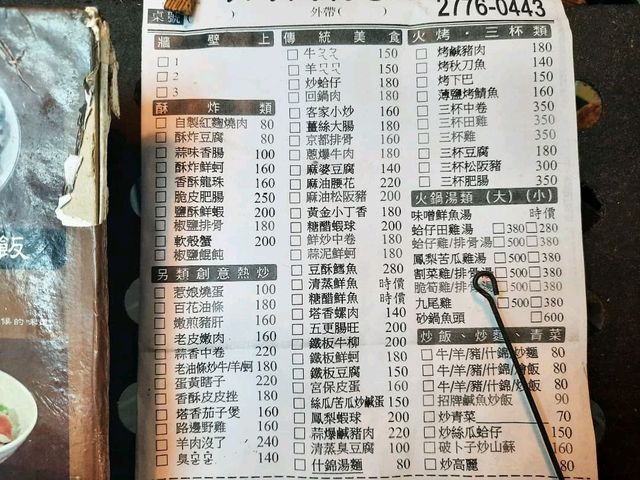 桌號( ) 外帶( ) 2776-0443
牆壁上
□1
□2
□3
酥炸類
□自製紅麴燒肉 80
□酥炸豆腐 80
□蒜味香腸 100
□酥炸鮮蚵 160
□香酥龍珠 160
□脆皮肥腸 250
□鹽酥鮮蝦 200
□椒鹽排骨 180
□軟殼蟹 200
□椒鹽餛飩
另類創意熱炒
□惹娘燒蛋 100
□百花油條 180
□嫩煎豬肝 160
□老皮嫩肉 160
□蒜香中卷 220
□老油條炒牛/羊/蚵 180
□蛋黃瞎子 220
□香酥皮皮挫 180
□塔香茄子煲 160
□路邊野雞 160
□羊肉沒了 240
□臭ㄇㄇ 140
傳統美食
□牛ㄡㄡ 150
□羊ㄡㄡ 150
□炒蛤仔 180
□回鍋肉 180
□客家小炒 160
□薑絲大腸 180
□京都排骨 180
□蔥爆牛肉 180
□麻婆豆腐 140
□麻油腰花 220
□麻油松阪豬 200
□黃金小丁香 180
□糖醋蝦球 200
□鮮炒中卷 180
□蒜泥鮮蚵 180
□豆酥鱈魚 280
□清蒸鮮魚 時價
□糖醋鮮魚 時價
□塔香螺肉 140
□五更腸旺 200
□鐵板牛柳 200
□鐵板鮮蚵 180
□鐵板豆腐 150
□宮保皮蛋 160
□絲瓜/苦瓜炒鹹蛋 150
□鳳梨蝦球 200
□蒜爆鹹豬肉 220
□清蒸臭豆腐 100
□什錦湯麵 80
火烤.三杯類
□烤鹹豬肉 180
□烤秋刀魚 140
□烤下巴 150
□薄鹽烤鯖魚 160
□三杯中卷 350
□三杯田雞 350
□三杯雞 350
□三杯豆腐 180
□三杯松阪豬 300
□三杯肥腸 350
火鍋湯類 (大) (小)
味噌鮮魚湯 時價
蛤仔田雞湯 □380□280
蛤仔雞/排骨湯□500□380
鳳梨苦瓜雞湯 □500□380
割菜雞/排骨湯□500□380
脆筍雞/排骨湯□500□380
九尾雞 □500□380
砂鍋魚頭 □600
炒飯、炒麵、青菜
□牛/羊/豬/什錦/炒麵 80
□牛/羊/豬/什錦/燴飯 80
□牛/羊/豬/什錦/炒飯 80
□招牌鹹魚炒飯 90
□炒青菜 70
□炒絲瓜蛤仔 150
□破卜子炒山蘇 160
□炒高麗 80
飯